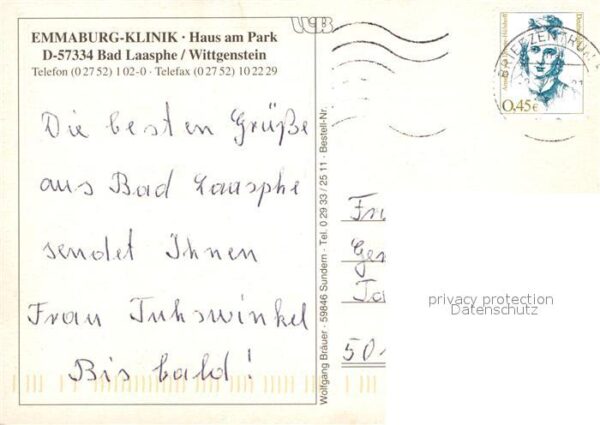 EMMABURG-KLINIK · Haus am Park
D-57334 Bad Laasphe / Wittgenstein
Telefon (0 27 52) 1 02-0 · Telefax (0 27 52) 10 22 29
Die besten Grüße
aus Bad Laasphe
sendet Ihnen
Frau Tuhswinkel
Bis bald!
Wolfgang Bräuer · 59846 Sundern · Tel. 0 29 33 / 25 11 · Bestell-Nr.
BRIEFZENTRUM
0,45€
Fr
Ger
50
privacy protection
Datenschutz